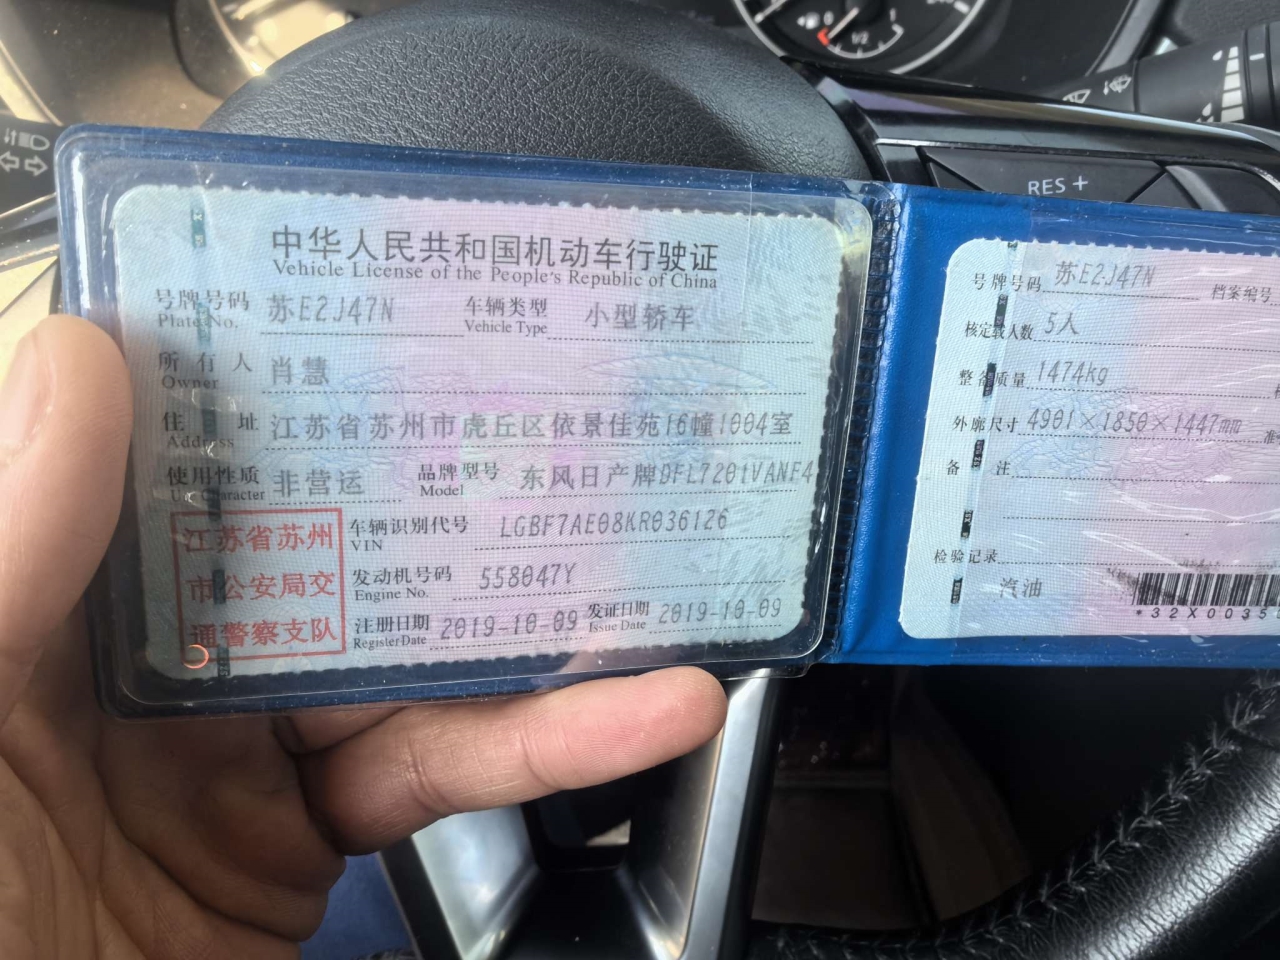 RES +
1/2
中华人民共和国机动车行驶证
Vehicle License of the People's Republic of China
号牌号码 苏E2J47N 车辆类型 小型轿车
Plate No. Vehicle Type
所有人 肖慧
Owner
住址 江苏省苏州市虎丘区依景佳苑16幢1004室
Address
使用性质 非营运 品牌型号 东风日产牌DFL7201VANF4
Use Character Model
江苏省苏州
市公安局交
通警察支队
车辆识别代号 LGBF7AE08KR036126
VIN
发动机号码 558047Y
Engine No.
注册日期 2019-10-09 发证日期 2019-10-09
Register Date Issue Date
号牌号码 苏E2J47N 档案编号
核定载人数 5人
整备质量 1474kg
外廓尺寸 4901×1850×1447mm 准
备注
检验记录
汽油
*32X0035